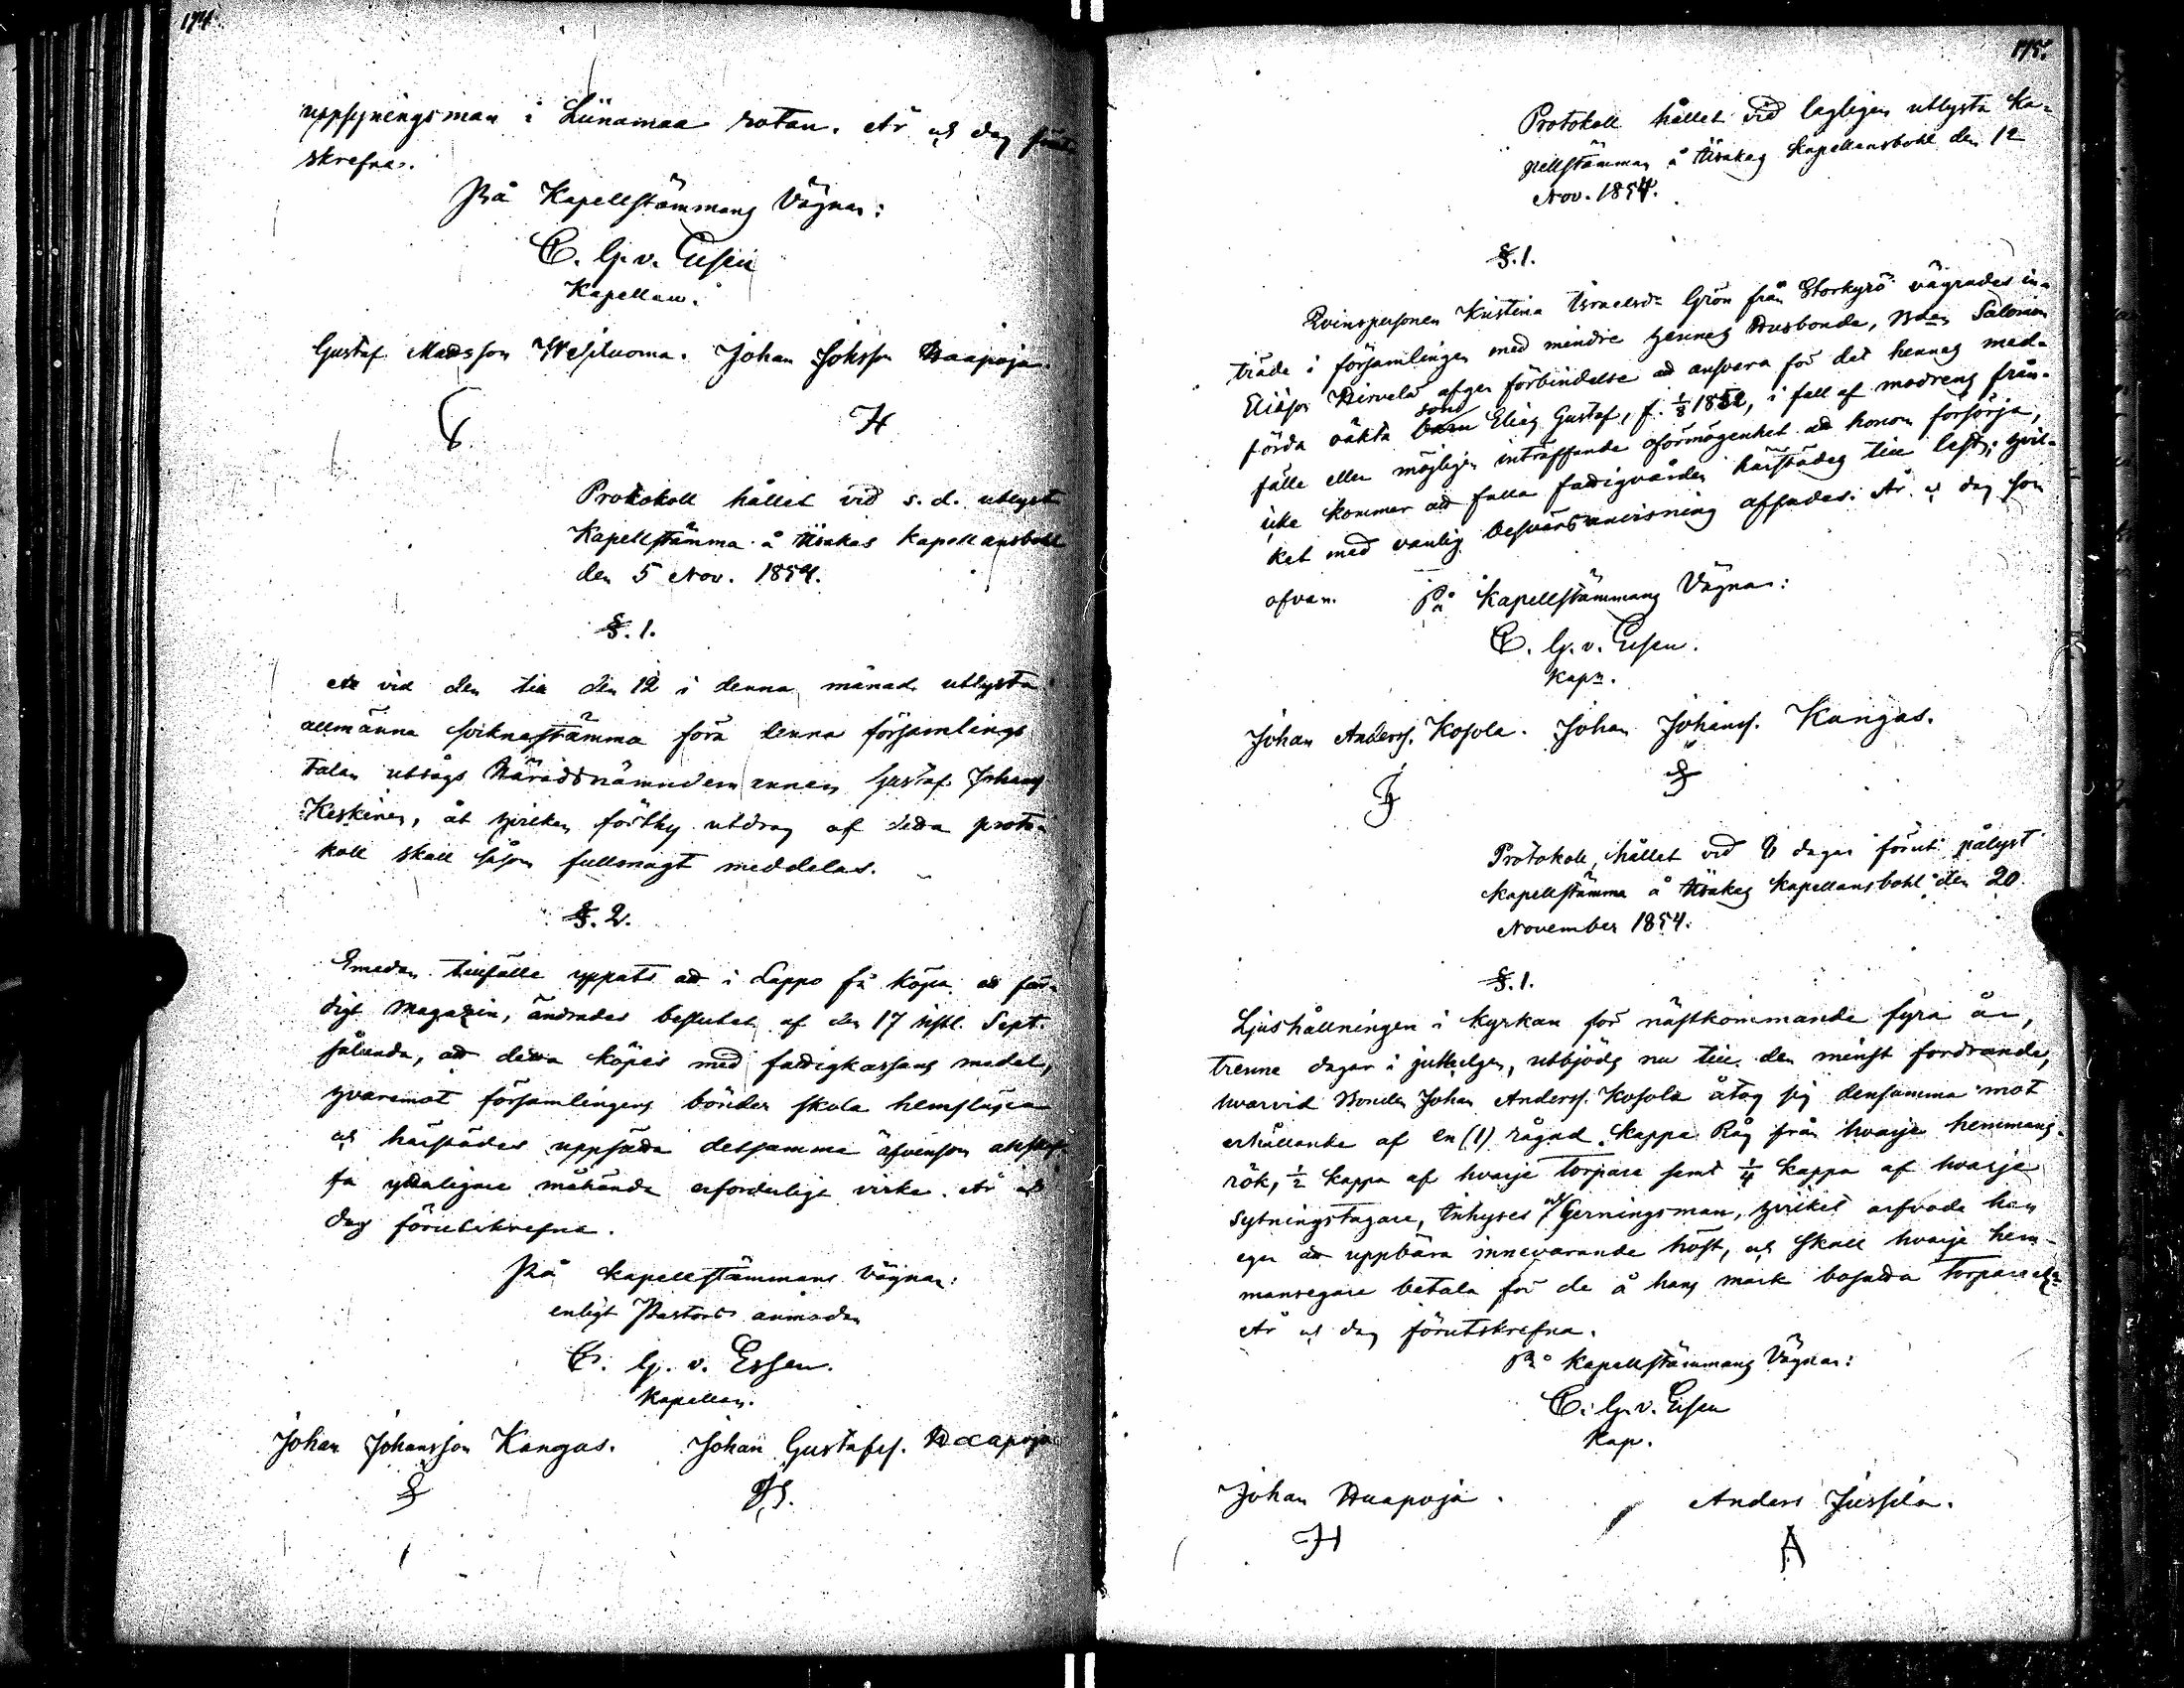 174.
uppsyningsman i Liinamaa rotan. År och dag förut-
skrefna.
På Kapellstämmans Vägnar:
C. G. v. Essen
Kapellan.
Gustaf Madsson Wesiluoma. Johan Johssn Haapoja.
H
Protokoll hållet vid s. d. utlyst
Kapellstämma å Ylikas Kapellansbohl
den 5 Nov. 1854.
§. 1.
Att vid den till den 12 i denna månad utlysta
allmänna socknestämma föra denna församlings
talan utsågs Häradsnämndemannen Gustaf Johans
Keskinen, åt hvilken förthy utdrag af detta proto-
koll skall såsom fullmagt meddelas.
§. 2.
Emedan tillfälle yppats att i Lappo få köpa ett fär-
digt Magazin, ändrades beslutet af den 17 sistl. Sept.
sålunda, att detta köpes med fattigkassans medel,
hvaremot församlingens bönder skola hemflytta
och härstädes uppsätta detsamma äfvensom anskaf-
fa ytterligare måhända erforderligt virke. År och
dag förutskrefna.
På kapellstämmans vägnar:
enligt Pastors anmodan
C. G. v. Essen.
Kapellan.
Johan Johansson Kangas. Johan Gustafss. Haapoja
175.
Protokoll hållet vid lagligen utlysta Ka-
pellstämman å Kapellansbohl den 12
Nov. 1854.
§. 1.
Qvinspersonen Kristina Israelsdr Grön från Storkyrö vägrades in-
träde i församlingen med mindre hennes Husbonde, Bden Salomon
Eliasson Hirvelä afger förbindelse att ansvara för det hennes med-
förda oäkta barn sons Elias Gustaf, f. 1/8 1852, i fall af modrens från-
fälle eller möjligen inträffande oförmögenhet att honom försörja,
icke kommer att falla fattigvården härstädes till last; hvil-
ket med vanlig besvärsanvisning afsades. År och dag som
ofvan. På Kapellstämmans Vägnar:
C. G. v. Essen.
Kapn.
Johan Anderss. Kosola. Johan Johanss. Kangas.
Protokoll, hållet vid 8 dagar förut pålyst
Kapellstämma å Kapellansbohl den 20
November 1854.
§. 1.
Ljushållningen i kyrkan för nästkommande fyra år,
trenne dagar i julhelgen, utbjöds nu till den minst fordrande,
hvarvid Bonden Johan Anderss. Kosola åtog sig densamma mot
erhållande af en (1) rågad kappa Råg från hvarje hemmans-
rök, 1/2 kappa af hvarje Torpare samt 1/4 kappa af hvarje
Sytningstagare, Inhyses och Gerningsman, hvilket arfvode han
eger att uppbära innevarande höst, och skall hvarje hem-
mansegare betala för de å hans mark bosatta Torpare etc
År och dag förutskrefna.
På Kapellstämmans Vägnar:
C. G. v. Essen
Kap.
Johan Haapoja. Anders Jussila.
H A